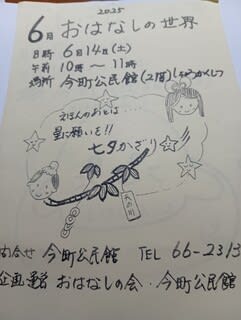 2025
6月 おはなしの世界
日時 6月14日(土)
午前 10時～11時
場所 今町公民館(2階)じゅうかくしつ
えほんのあとは...
星に願いを!!
七夕かざり
天の川
問合せ 今町公民館 TEL 66-2313
企画運営 おはなしの会・今町公民館